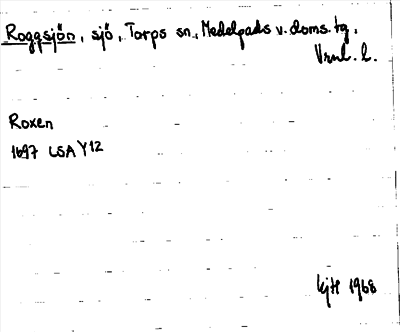 Roggsjön, sjö, Torps sn., Medelpads v. doms. tg,
Vrnl. l.
Roxen
1697 LSA Y12
1968